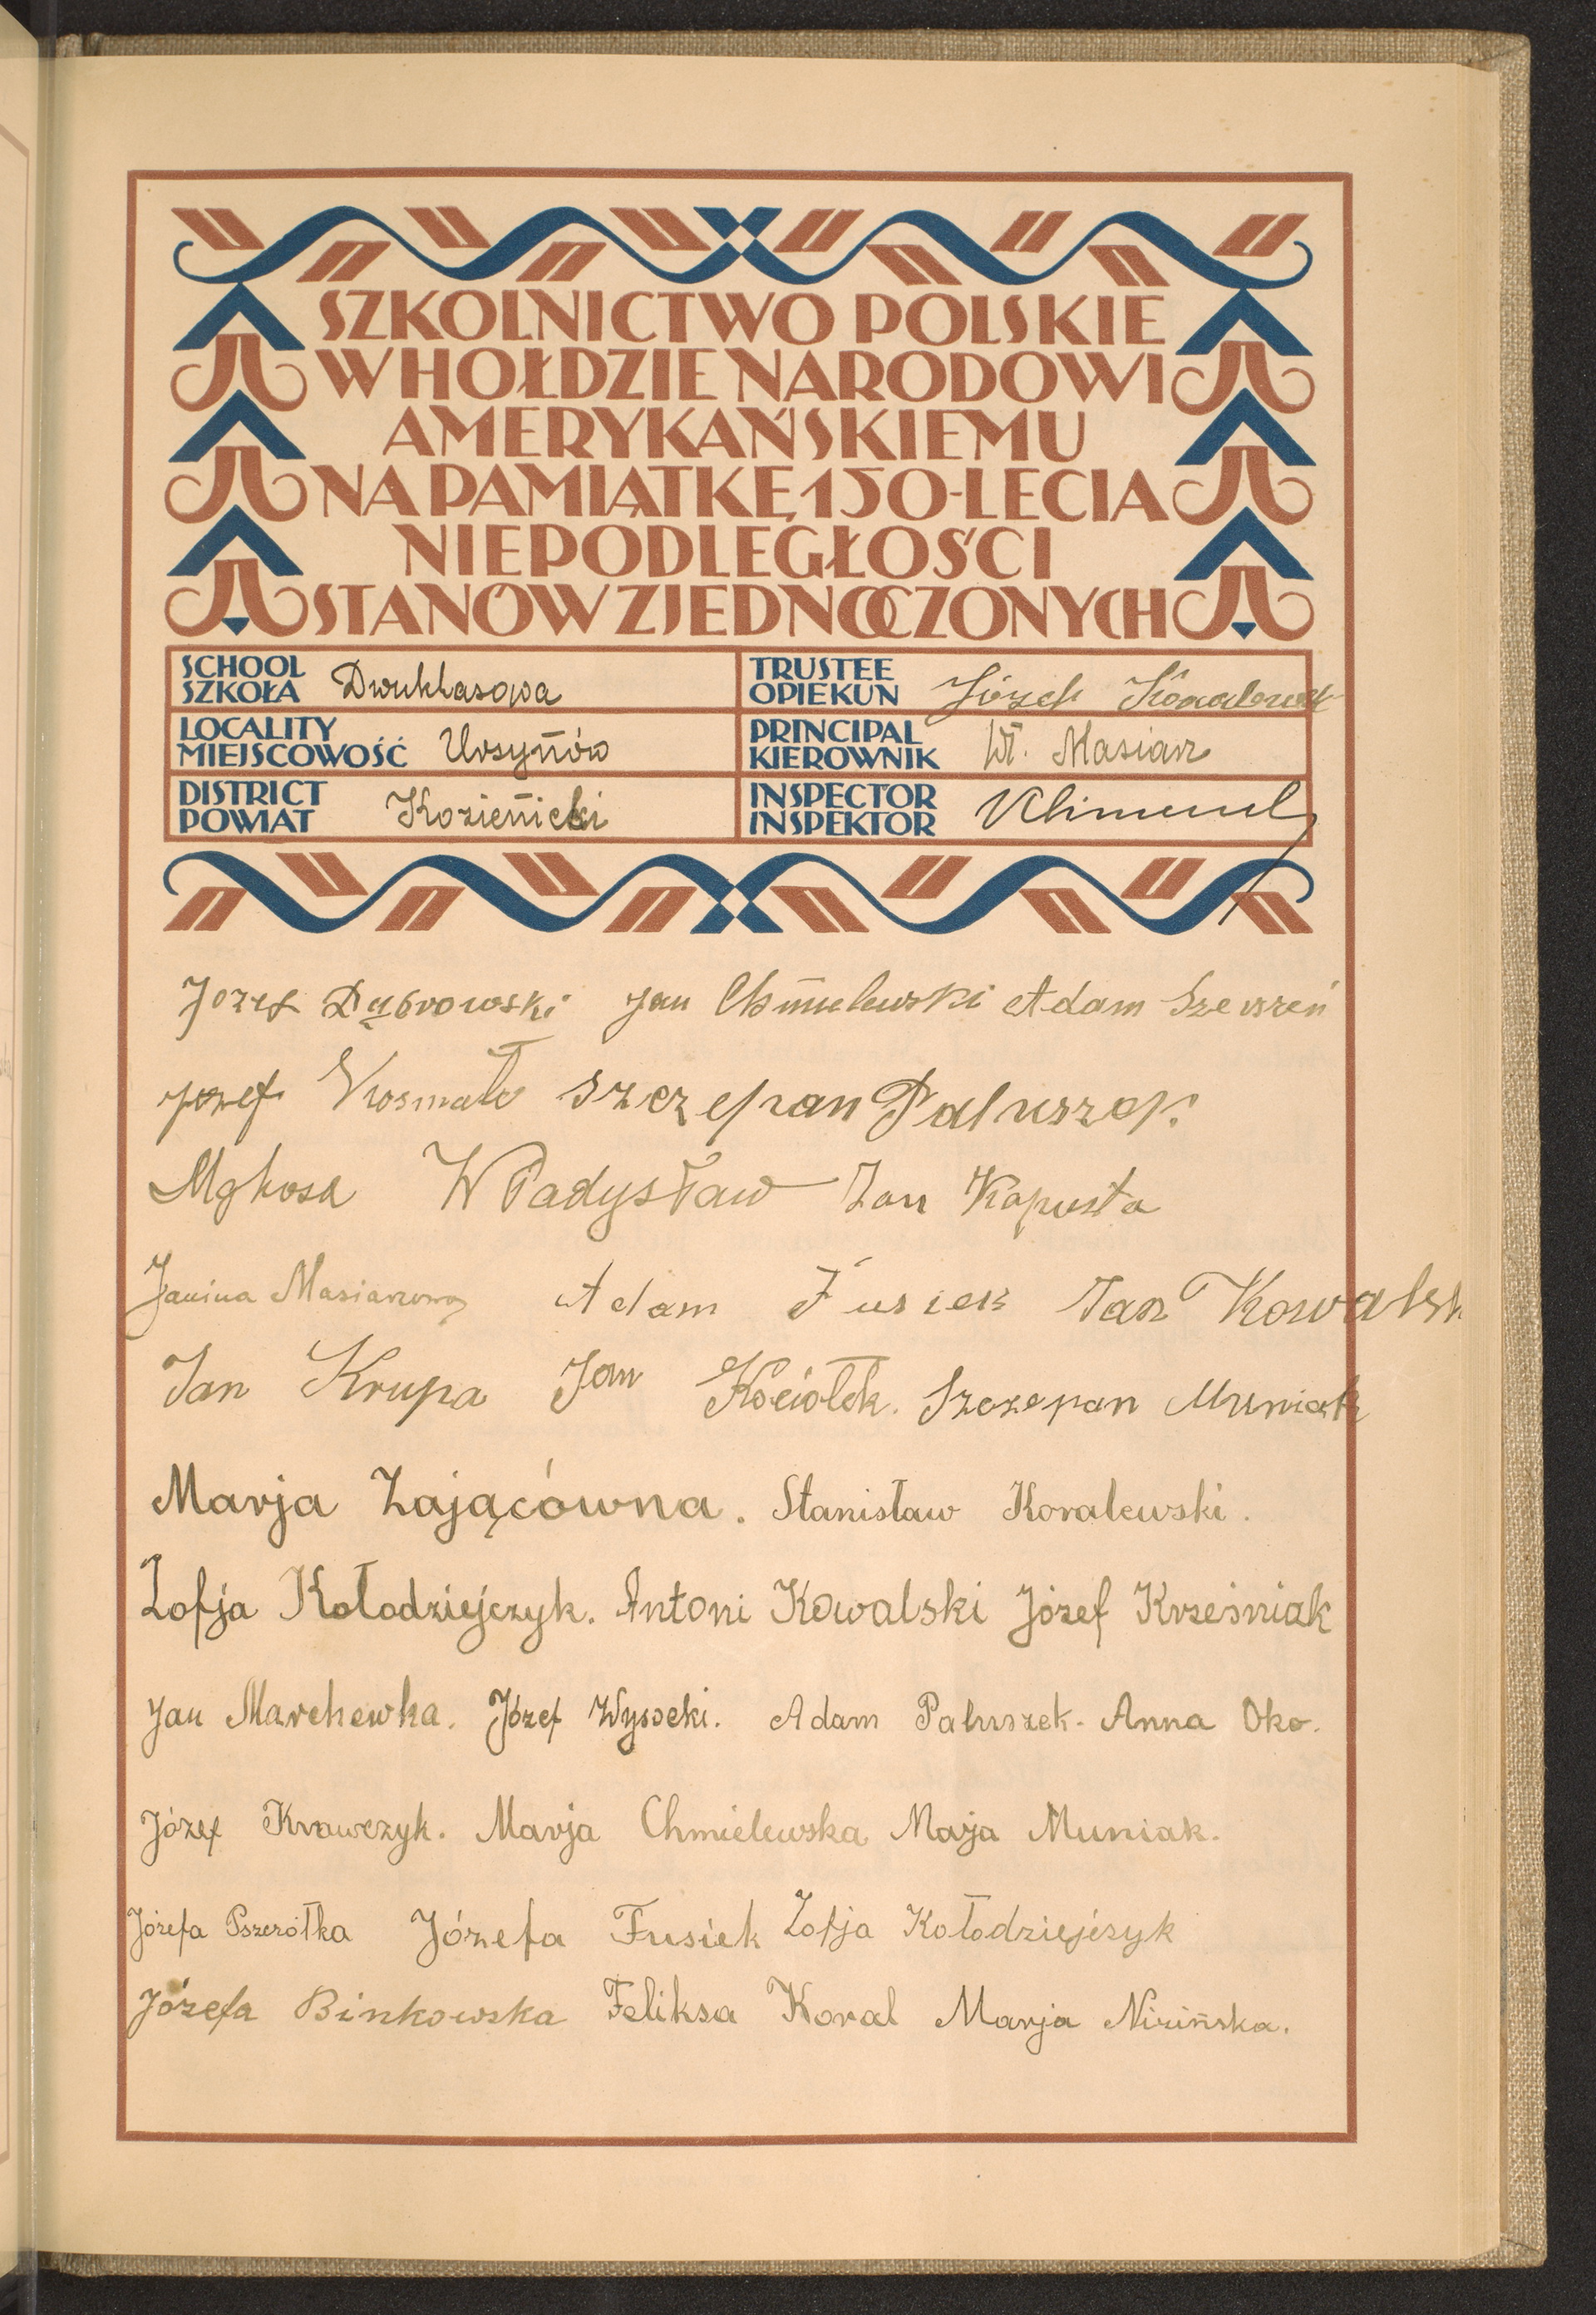 SZKOLNICTWO POLSKIE
W HOŁDZIE NARODOWI
AMERYKAŃSKIEMU
NA PAMIĄTKĘ 150-LECIA
NIEPODLEGŁOŚCI
STANÓW ZJEDNOCZONYCH
SCHOOL
SZKOŁA Dwuklasowa
TRUSTEE
OPIEKUN Józef
LOCALITY
MIEJSCOWOŚĆ Ursynów
PRINCIPAL
KIEROWNIK Wł. Masiarz
DISTRICT
POWIAT Kozienicki
INSPECTOR
INSPEKTOR
Jozef Dąbrowski Jan Chmielewski Adam Szewszeń
Jozef Kosmala Szczepan Paluszek
Władysław Jan Kapusta
Janina Masiarzowa Adam Fusiek Jan Kowalsk
Jan Krupa Jan Kociołek. Szczepan Muniak
Marja Zającówna. Stanisław Koralewski.
Zofja Kołodziejczyk. Antoni Kowalski Józef Krześniak
Jan Marchewka. Józef Wysocki. Adam Paluszek. Anna Oko.
Józef Krawczyk. Marja Chmielewska Marja Muniak.
Józefa Pszczółka Józefa Fusiek Zofja Kołodziejczyk
Józefa Binkowska Feliksa Koral Marja Nizińska.